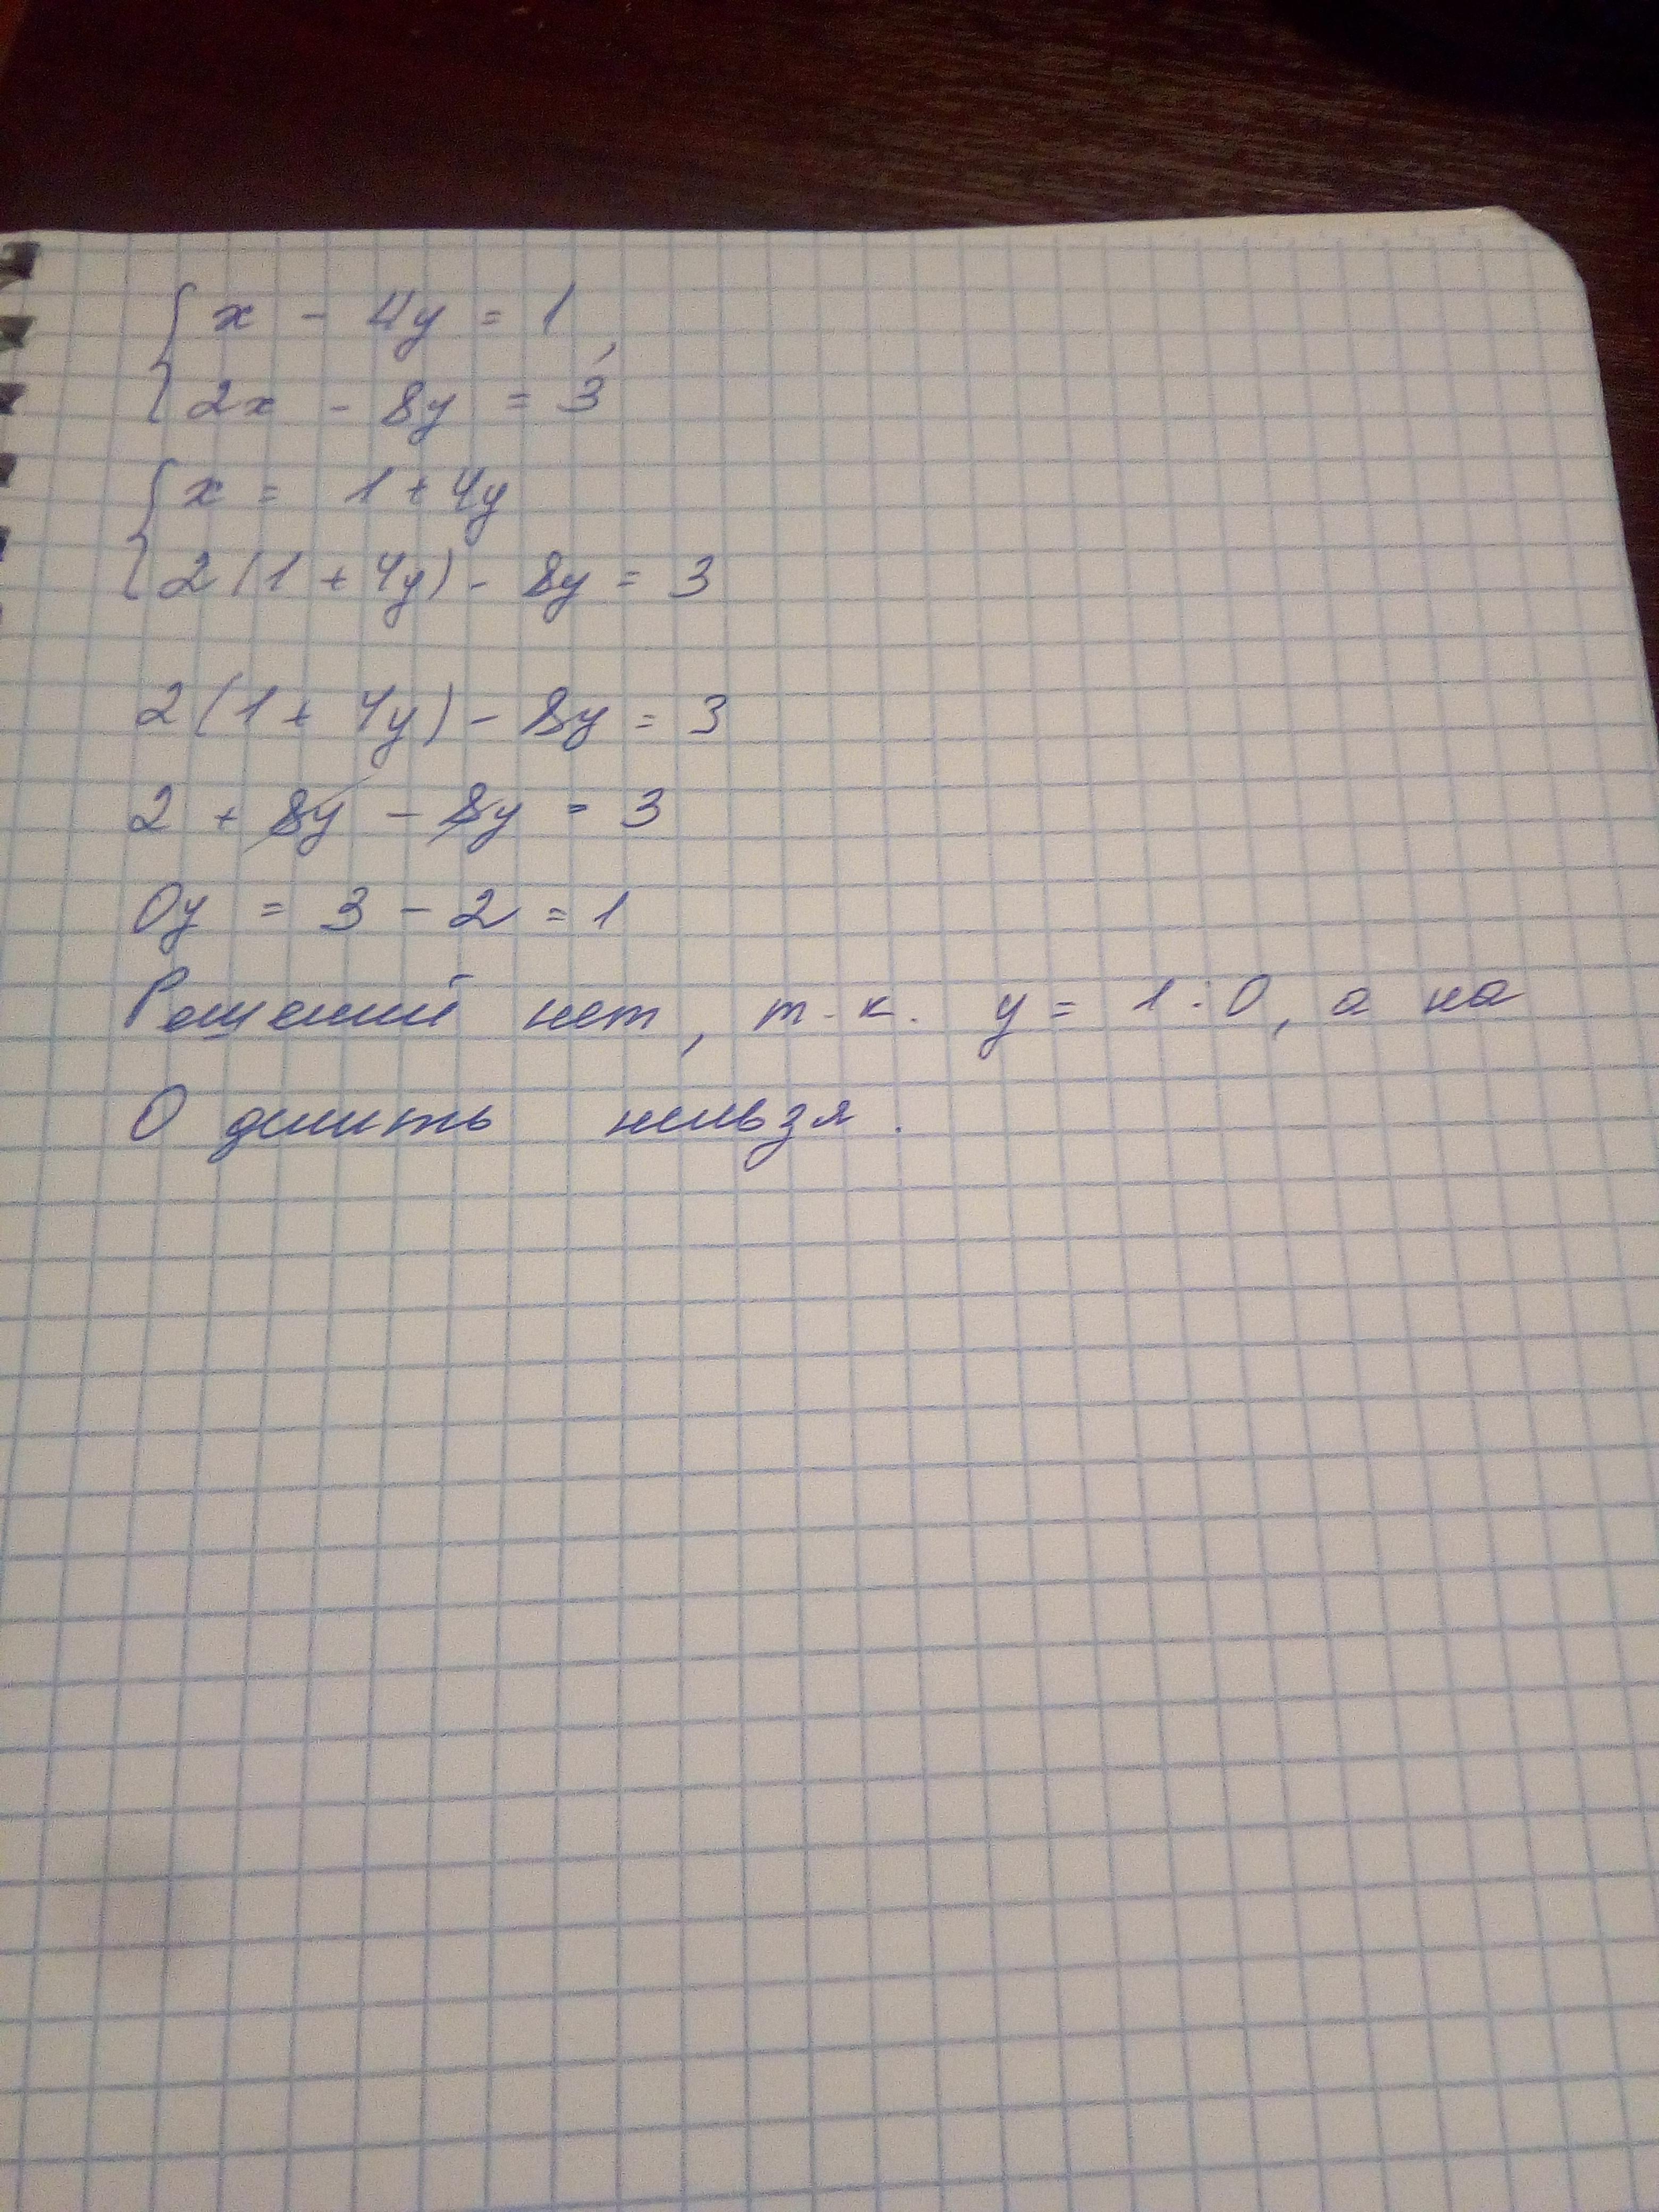 { x - 4y = 1,
{ 2x - 8y = 3
{ x = 1 + 4y
{ 2(1 + 4y) - 8y = 3
2(1 + 4y) - 8y = 3
2 + 8y - 8y = 3
0y = 3 - 2 = 1
Решений нет, т.к. y = 1:0, а на
0 делить нельзя.